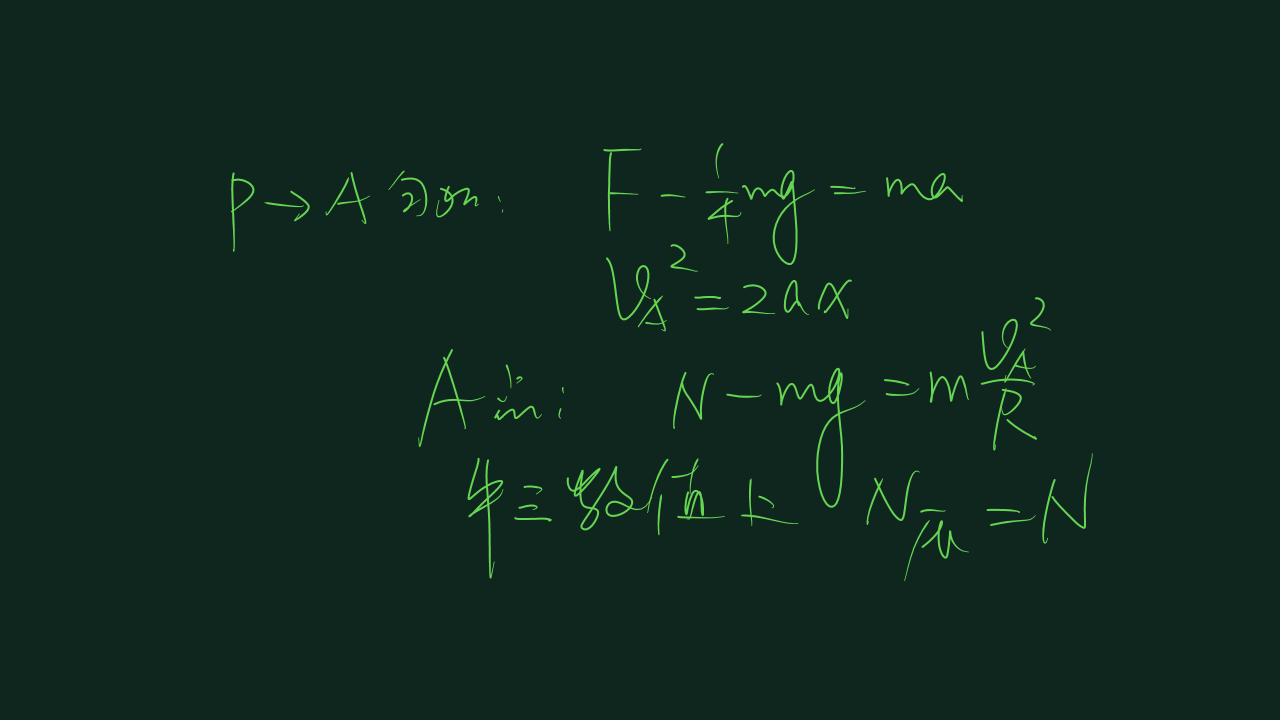 P→A匀加: F - 1/4 mg = ma
v_A² = 2ax
A点: N - mg = m v_A²/R
牛三 数值上 N压 = N